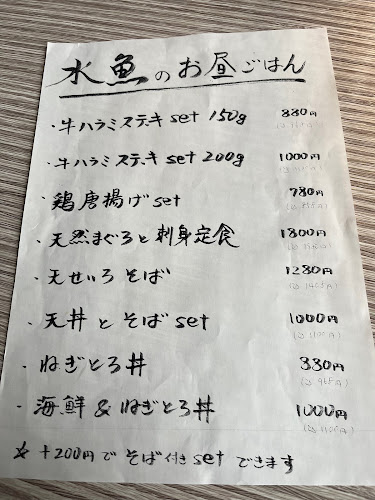 水魚のお昼ごはん
・牛ハラミステーキ set 150g 880円
・牛ハラミステーキ set 200g 1000円
・鶏唐揚げ set 780円
・天然まぐろと刺身定食 1800円
・天せいろそば 1280円
・天丼とそば set 1000円
・ねぎとろ丼 880円
・海鮮&ねぎとろ丼 1000円
☆ +200円でそば付き set できます